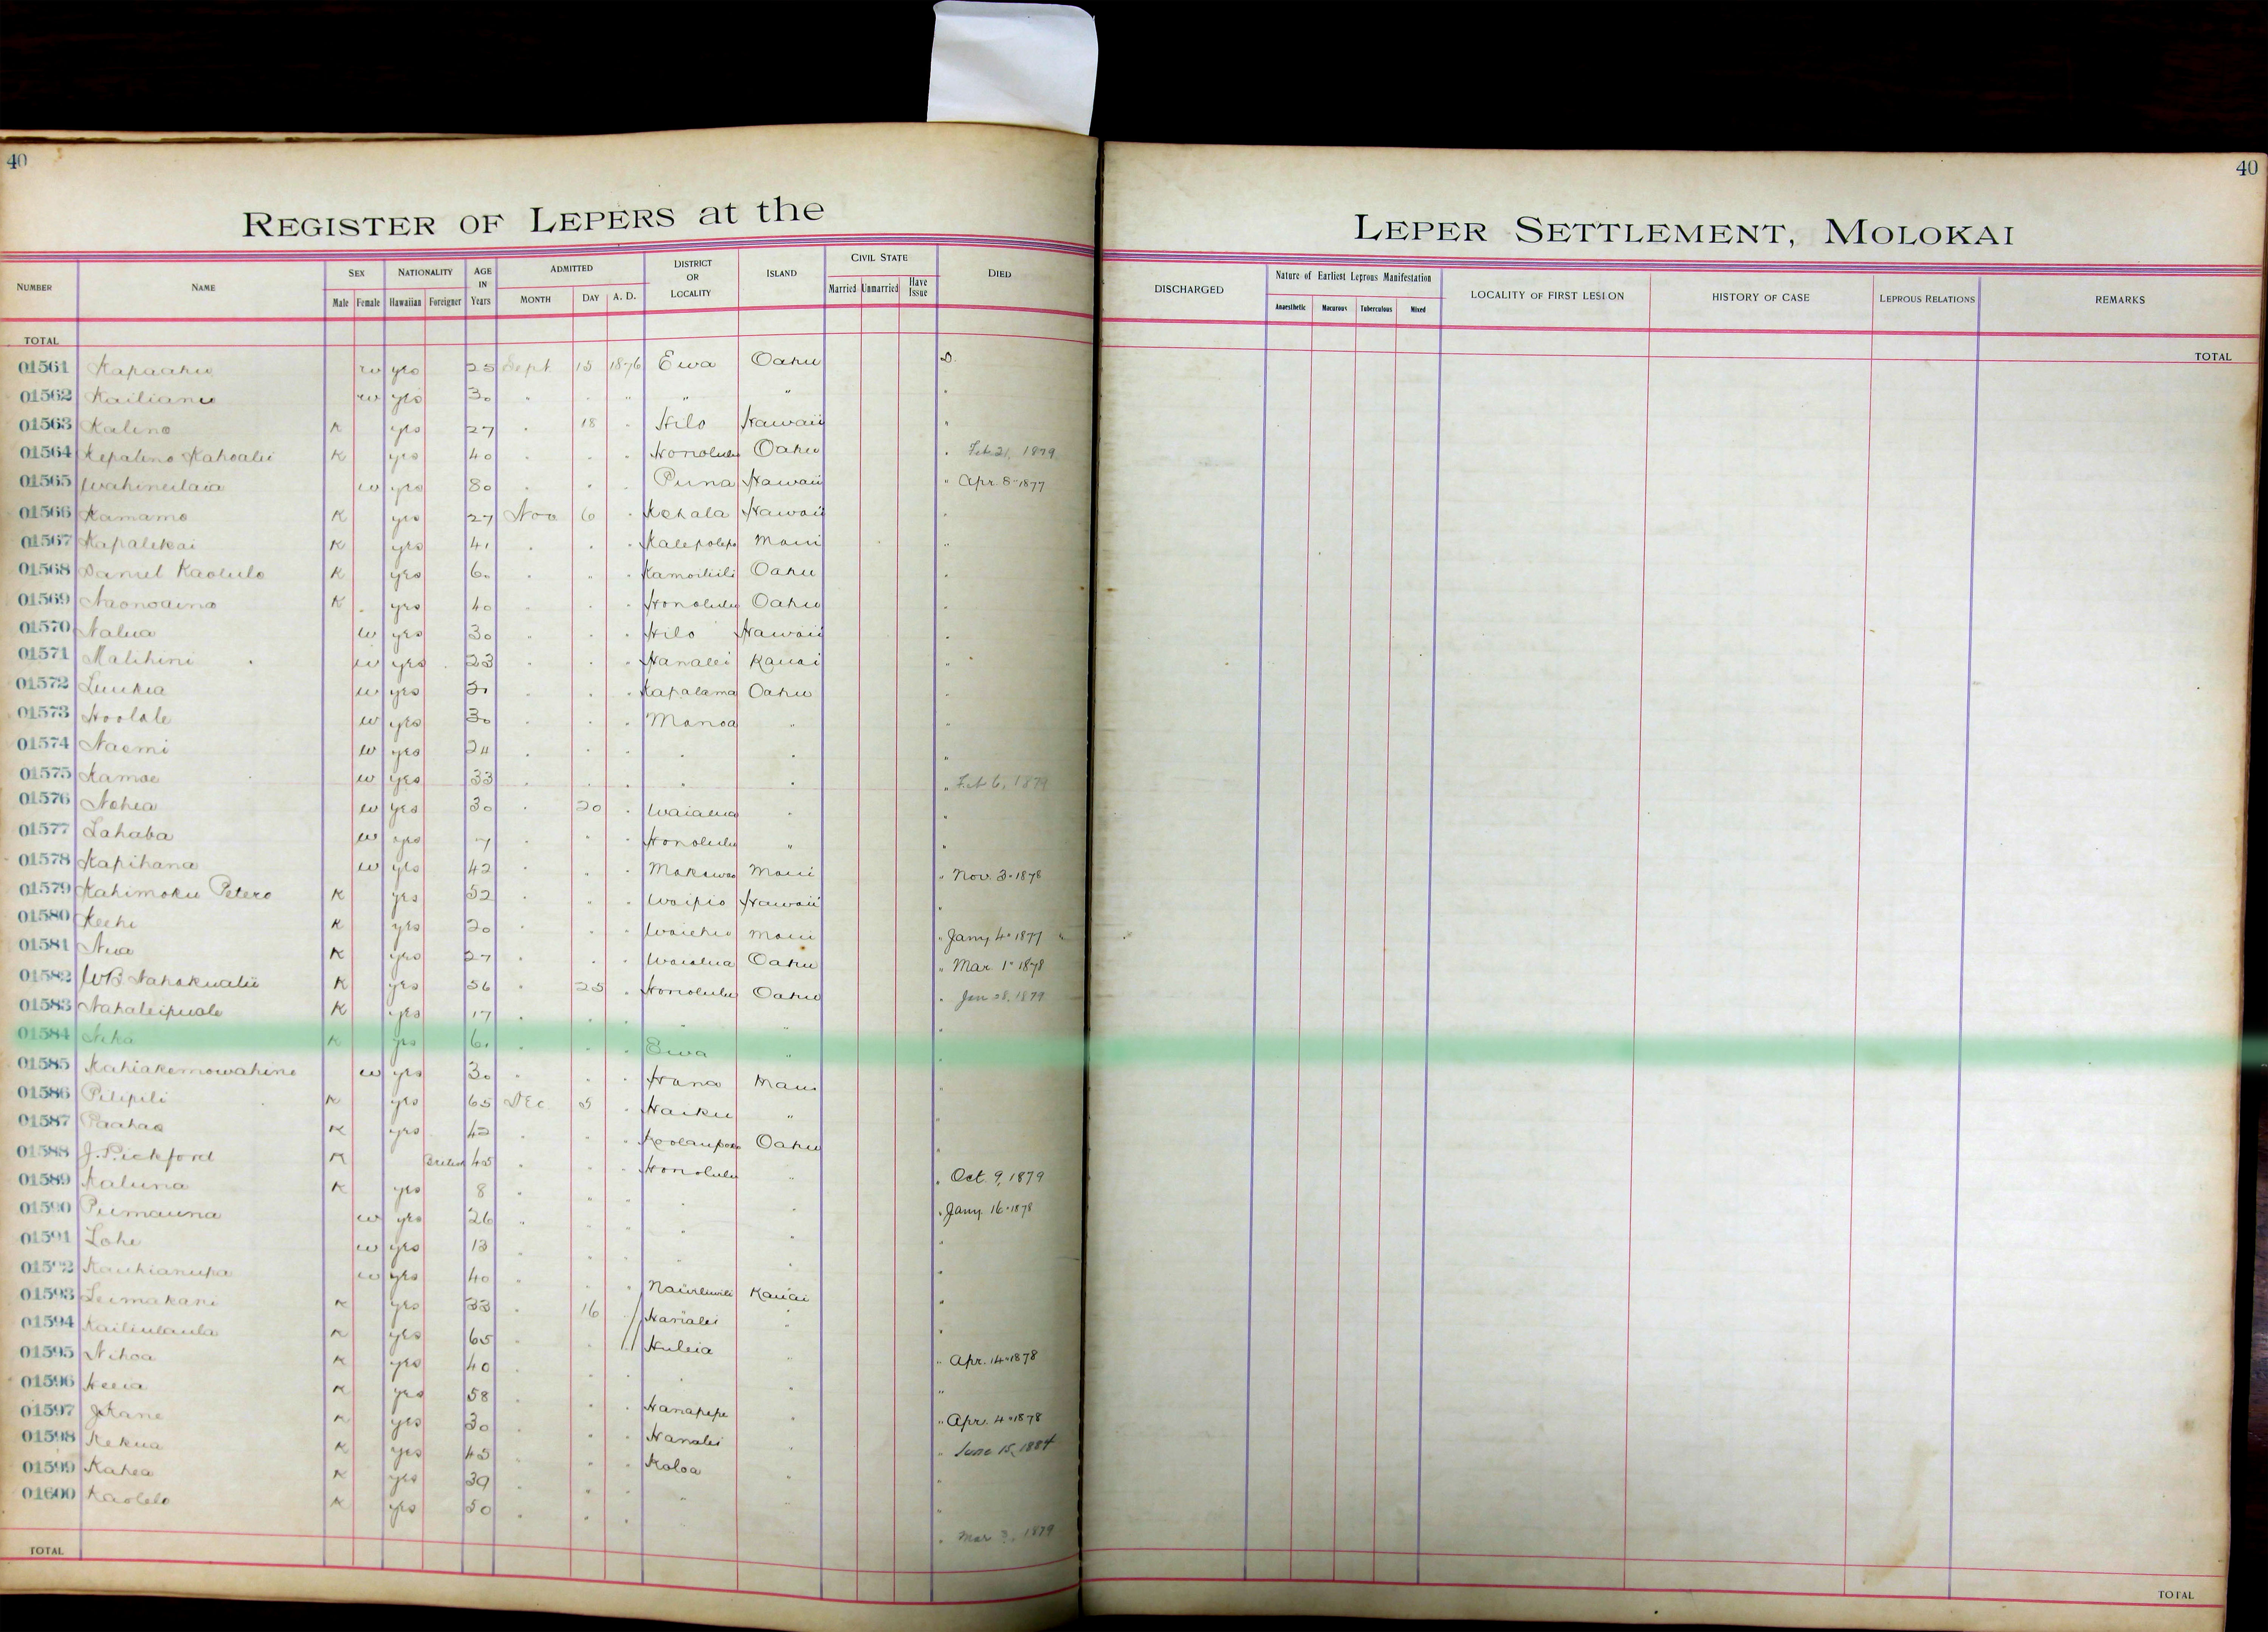 40
REGISTER OF LEPERS at the
NUMBER NAME SEX NATIONALITY AGE IN Years ADMITTED DISTRICT OR LOCALITY ISLAND CIVIL STATE DIED
Male Female Hawaiian Foreigner MONTH DAY A. D. Married Unmarried Have Issue
TOTAL
01561 Kapaahu w yes 25 Sept 15 1876 Ewa Oahu D.
01562 Kailianu w yes 30 " " " " " "
01563 Kalino K yes 27 " 18 " Hilo Hawaii "
01564 Kepalino Kahoalii K yes 40 " " " Honolulu Oahu " Feb 21, 1879
01565 Wahineilaia w yes 80 " " " Puna Hawaii " Apr. 8-1877
01566 Kamamo K yes 27 Nov 6 " Kohala Hawaii "
01567 Kapalikai K yes 41 " " " Kalepolepo Maui "
01568 Daniel Kaolulo K yes 60 " " " Kamoiliili Oahu "
01569 Naonoaina K yes 40 " " " Honolulu Oahu "
01570 Nalua w yes 30 " " " Hilo Hawaii "
01571 Malihini w yes 23 " " " Hanalei Kauai "
01572 Luukia w yes " " " Kapalama Oahu "
01573 Hoolale w yes 30 " " " Manoa " "
01574 Naomi w yes 24 " " " " " "
01575 Kamae w yes 33 " " " " " " Feb 6, 1879
01576 Nohea w yes 30 " 20 " Waialua " "
01577 Lahaba w yes 7 " " " Honolulu " "
01578 Kapihana w yes 42 " " " Makawao Maui " Nov. 3-1878
01579 Kahimoku Petero K yes 52 " " " Waipio Hawaii "
01580 Keehi K yes 20 " " " Waiehu Maui " Jany 4-1877 "
01581 Niua K yes 27 " " " Waialua Oahu " Mar. 1-1878
01582 WB Nahokualii K yes 56 " 25 " Honolulu Oahu " Jan 28, 1879
01583 Nahaleipuale K yes 17 " " " " " "
01584 Nika K yes 61 " " " Ewa " "
01585 Kahiakemowahine w yes 30 " " " Hana Maui "
01586 Pilipili K yes 65 Dec 5 " Haiku " "
01587 Paahao K yes 42 " " " Koolaupoko Oahu "
01588 J. Pickford K British 45 " " " Honolulu " " Oct. 9, 1879
01589 Kaluna K yes 8 " " " " " " Jany 16-1878
01590 Puimauna w yes 26 " " " " " "
01591 Lohe w yes 13 " " " " " "
01592 Kauhianupa w yes 40 " " " Nawiliwili Kauai "
01593 Leimakani K yes 33 " 16 " Hanalei " "
01594 Kailiulaula K yes 65 " " " Huleia " " Apr. 14-1878
01595 Nihoa K yes 40 " " " " " "
01596 Heeia K yes 58 " " " Hanapepe " " Apr. 4-1878
01597 J Kane K yes 30 " " " Hanalei " " June 15, 1884
01598 Kekua K yes 45 " " " Koloa " "
01599 Kahea K yes 39 " " " " " "
01600 Kaolelo K yes 50 " " " Mar 3, 1879
TOTAL
40
LEPER SETTLEMENT, MOLOKAI
DISCHARGED Nature of Earliest Leprous Manifestation LOCALITY OF FIRST LESION HISTORY OF CASE LEPROUS RELATIONS REMARKS
Anaesthetic Macurous Tuberculous Mixed
TOTAL
TOTAL